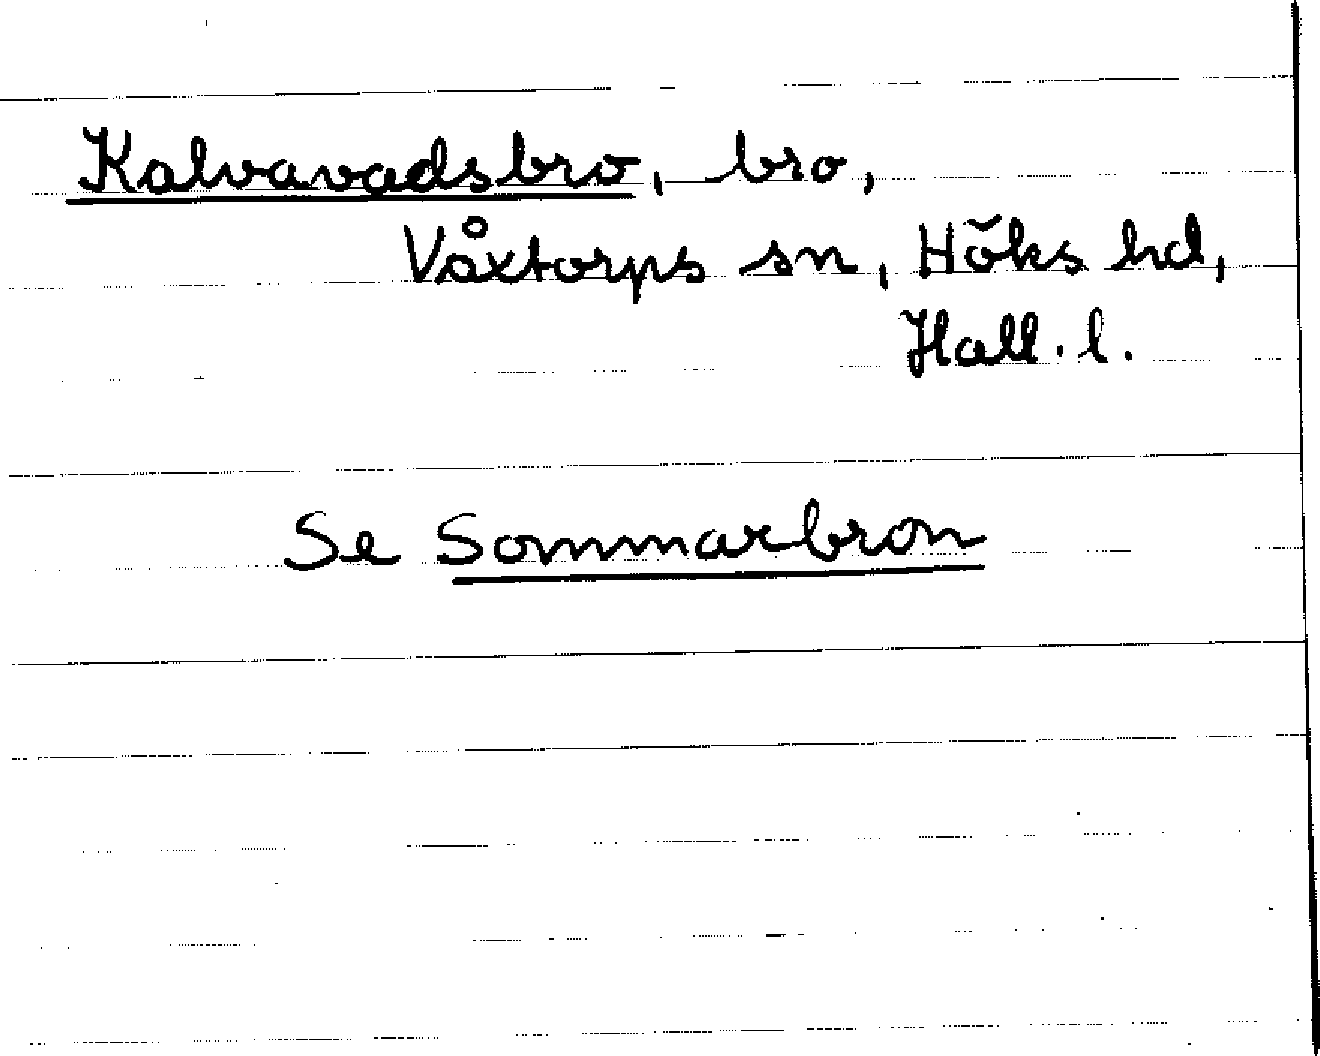 Kalvavadsbro, bro,
Våxtorps sn, Höks hd,
Hall. l.
Se Sommarbron